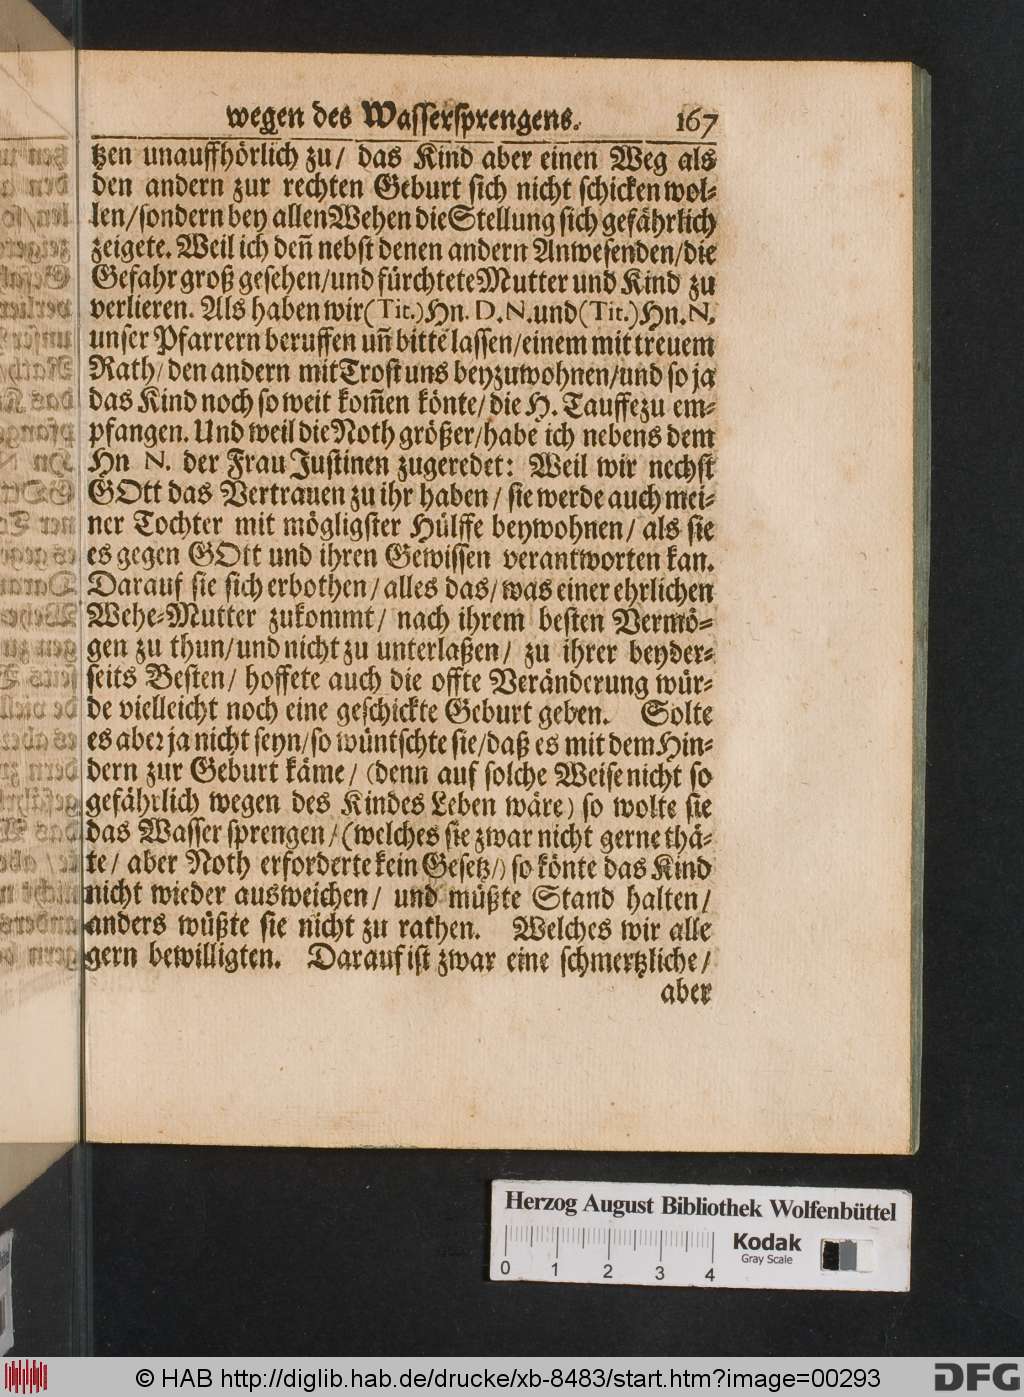 wegen des Wassersprengens. 167
tzen unauffhörlich zu/ das Kind aber einen Weg als
den andern zur rechten Geburt sich nicht schicken wol-
len/sondern bey allen Wehen die Stellung sich gefährlich
zeigete. Weil ich den̄ nebst denen andern Anwesenden/die
Gefahr groß gesehen/und fürchtete Mutter und Kind zu
verlieren. Als haben wir (Tit.) Hn. D. N. und (Tit.) Hn. N.
unser Pfarrern beruffen un̄ bitte lassen/einem mit treuem
Rath/ den andern mit Trost uns beyzuwohnen/und so ja
das Kind noch so weit kom̄en könte/ die H. Tauffe zu em-
pfangen. Und weil die Noth größer/habe ich nebens dem
Hn N. der Frau Justinen zugeredet: Weil wir nechst
GOtt das Vertrauen zu ihr haben/ sie werde auch mei-
ner Tochter mit mögligster Hülffe beywohnen/ als sie
es gegen GOtt und ihren Gewissen verantworten kan.
Darauf sie sich erbothen/ alles das/ was einer ehrlichen
Wehe-Mutter zukommt/ nach ihrem besten Vermö-
gen zu thun/und nicht zu unterlaßen/ zu ihrer beyder-
seits Besten/ hoffete auch die offte Veränderung wür-
de vielleicht noch eine geschickte Geburt geben. Solte
es aber ja nicht seyn/so wüntschte sie/daß es mit dem Hin-
dern zur Geburt käme/ (denn auf solche Weise nicht so
gefährlich wegen des Kindes Leben wäre) so wolte sie
das Wasser sprengen/ (welches sie zwar nicht gerne thä-
te/ aber Noth erforderte kein Gesetz/) so könte das Kind
nicht wieder ausweichen/ und müßte Stand halten/
anders wüßte sie nicht zu rathen. Welches wir alle
gern bewilligten. Darauf ist zwar eine schmertzliche/
aber
Herzog August Bibliothek Wolfenbüttel
Kodak
Gray Scale
0 1 2 3 4
© HAB http://diglib.hab.de/drucke/xb-8483/start.htm?image=00293
DFG